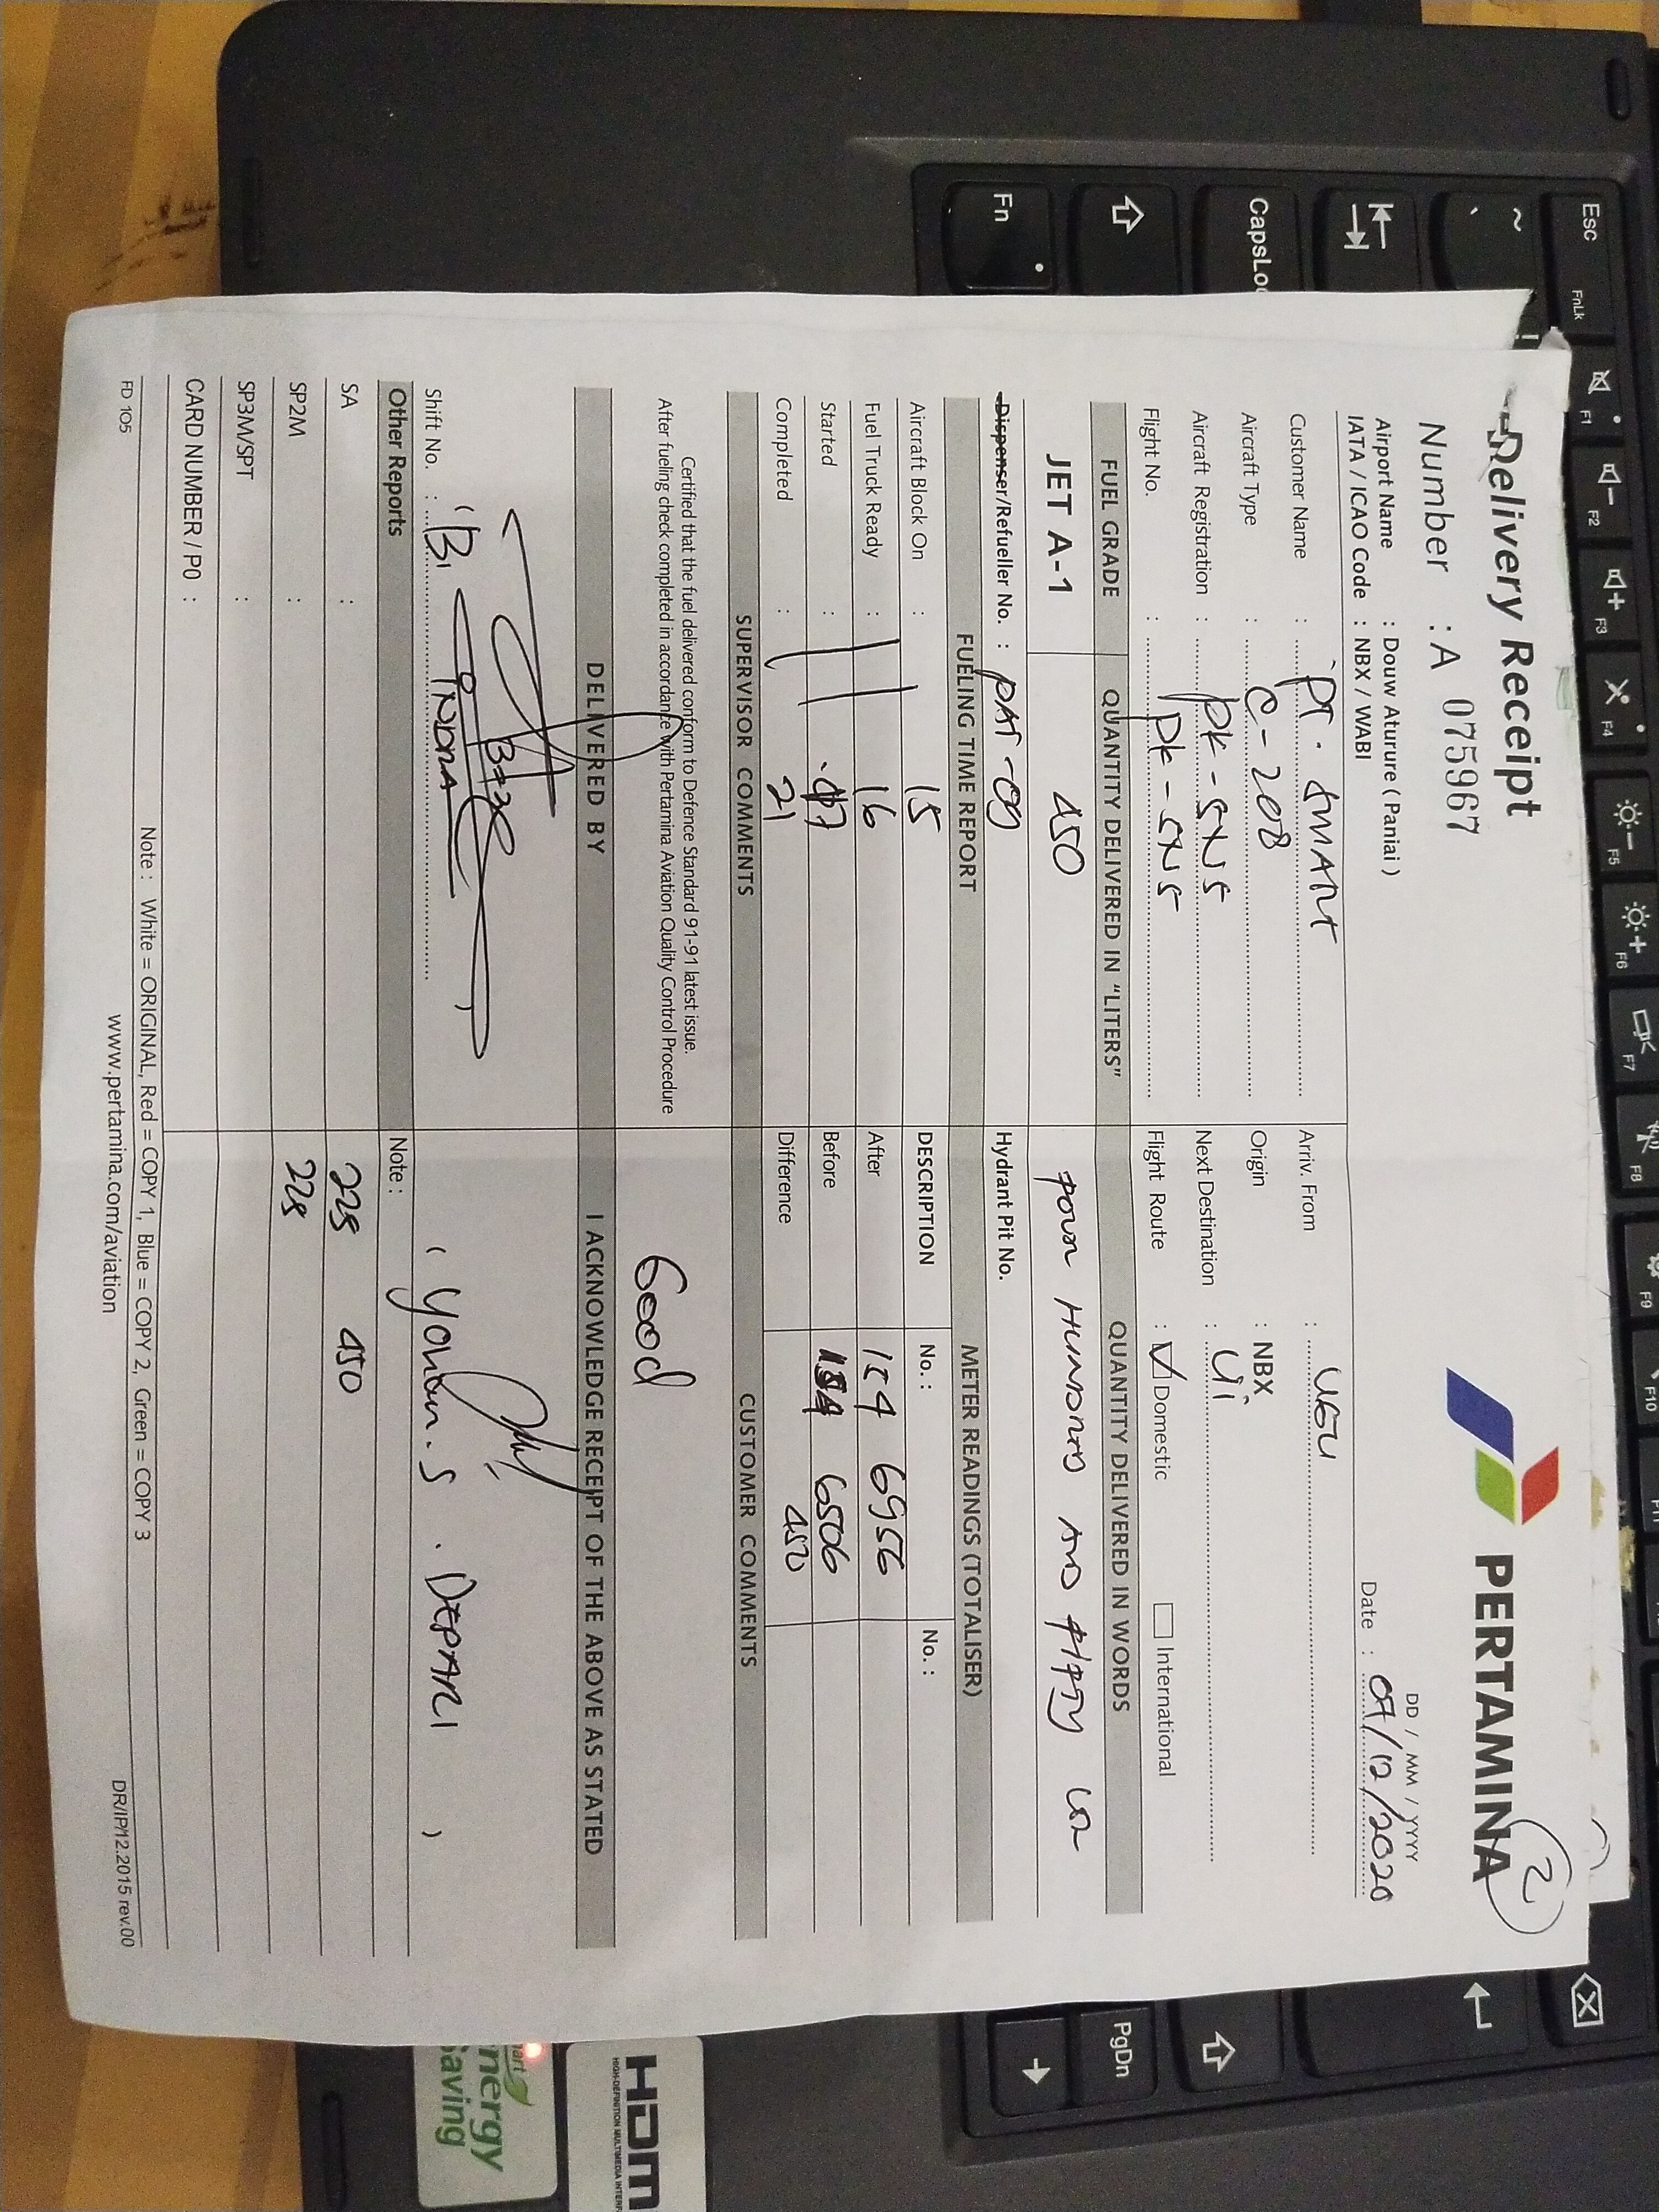 Delivery Receipt
PERTAMINA
2
Number : A 075967
DD / MM / YYYY
Airport Name : Douw Aturure ( Paniai )
Date : 07/12/2020
IATA / ICAO Code : NBX / WABI
Customer Name : PT. SMART
Arriv. From :
Aircraft Type : C-208
Origin : NBX
Aircraft Registration : PK-SNS
Next Destination :
Flight No. : PK-SNS
Flight Route : Domestic International
FUEL GRADE QUANTITY DELIVERED IN "LITERS" QUANTITY DELIVERED IN WORDS
JET A-1 450
Dispenser/Refueller No. : PAT-09
Hydrant Pit No.
FUELING TIME REPORT METER READINGS (TOTALISER)
Aircraft Block On : 15 DESCRIPTION No. : No. :
Fuel Truck Ready : 16 After 154 6956
Started : Before 154 6506
Completed : 21 Difference 450
SUPERVISOR COMMENTS CUSTOMER COMMENTS
Certified that the fuel delivered conform to Defence Standard 91-91 latest issue.
After fueling check completed in accordance with Pertamina Aviation Quality Control Procedure
Good
DELIVERED BY I ACKNOWLEDGE RECEIPT OF THE ABOVE AS STATED
Shift No. :
INDRA
( Yohan.S. DEPARI )
Other Reports Note :
SA : 225 450
SP2M : 225
SP3M/SPT :
CARD NUMBER / P0 :
Note : White = ORIGINAL, Red = COPY 1, Blue = COPY 2, Green = COPY 3
FD 105
www.pertamina.com/aviation
DR/IP/12.2015 rev.00
Esc
FnLk
F1
F2
F3
F4
F5
F6
F7
F8
F9
F10
CapsLoc
Fn
PgDn
HDmI
HIGH-DEFINITION MULTIMEDIA INTERF
art
nergy
aving